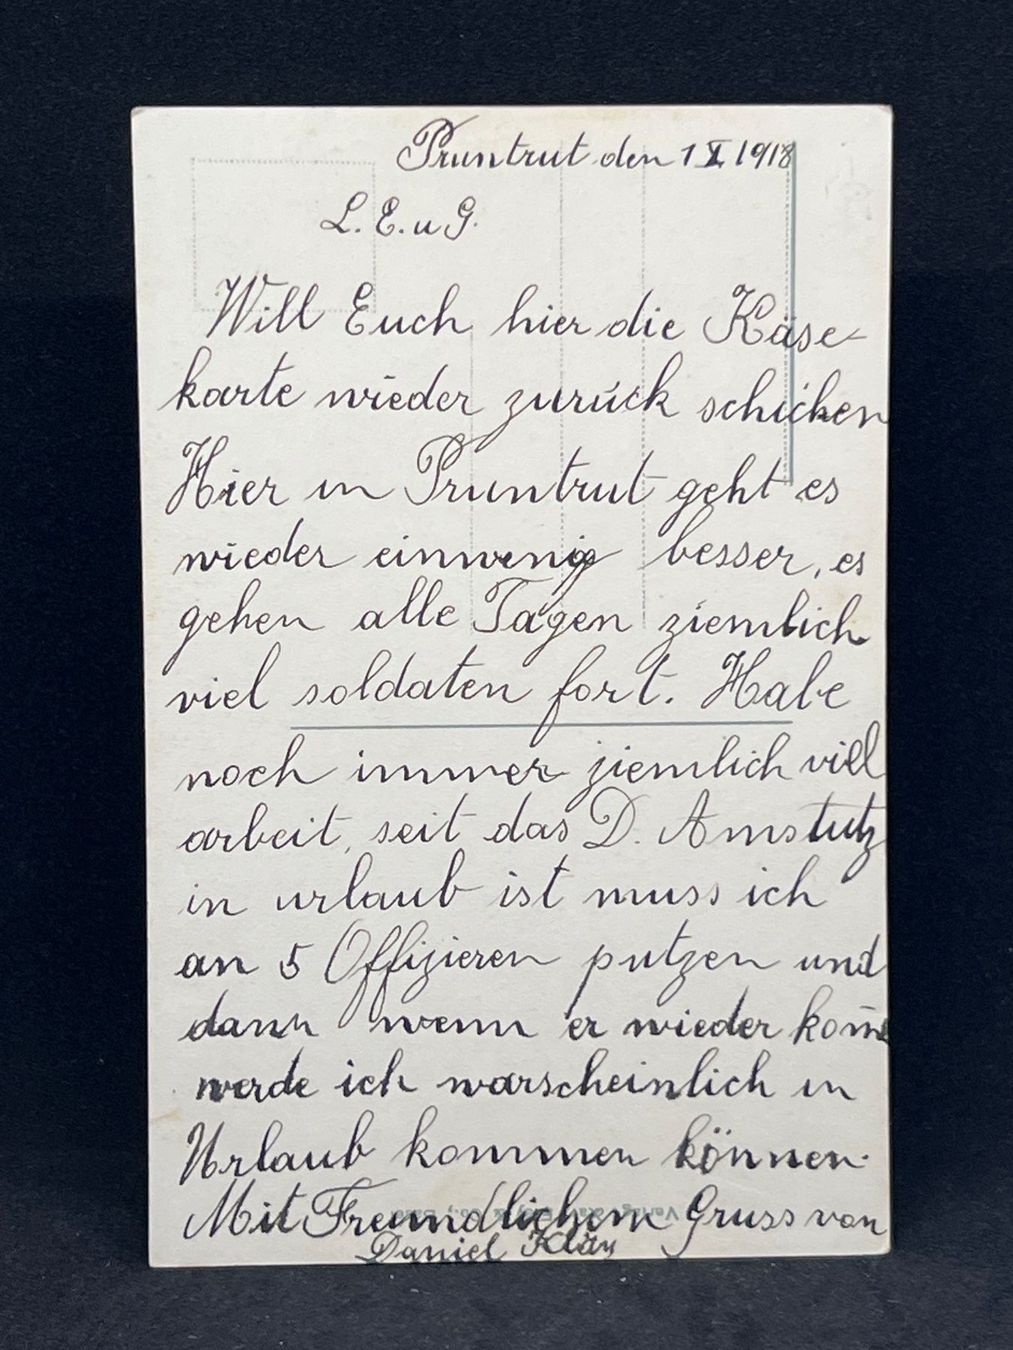 Pruntrut den 1 X 1918
L. E. u G.
Will Euch hier die Käse-
karte wieder zurück schicken
Hier in Pruntrut geht es
wieder einwenig besser, es
gehen alle Tagen ziemlich
viel soldaten fort. Habe
noch immer ziemlich viel
arbeit, seit das D. Amstutz
in urlaub ist muss ich
an 5 Offizieren putzen und
dann wenn er wieder kom̄e
werde ich warscheinlich in
Urlaub kommen können.
Mit Freundlichem Gruss von
Daniel Kläy